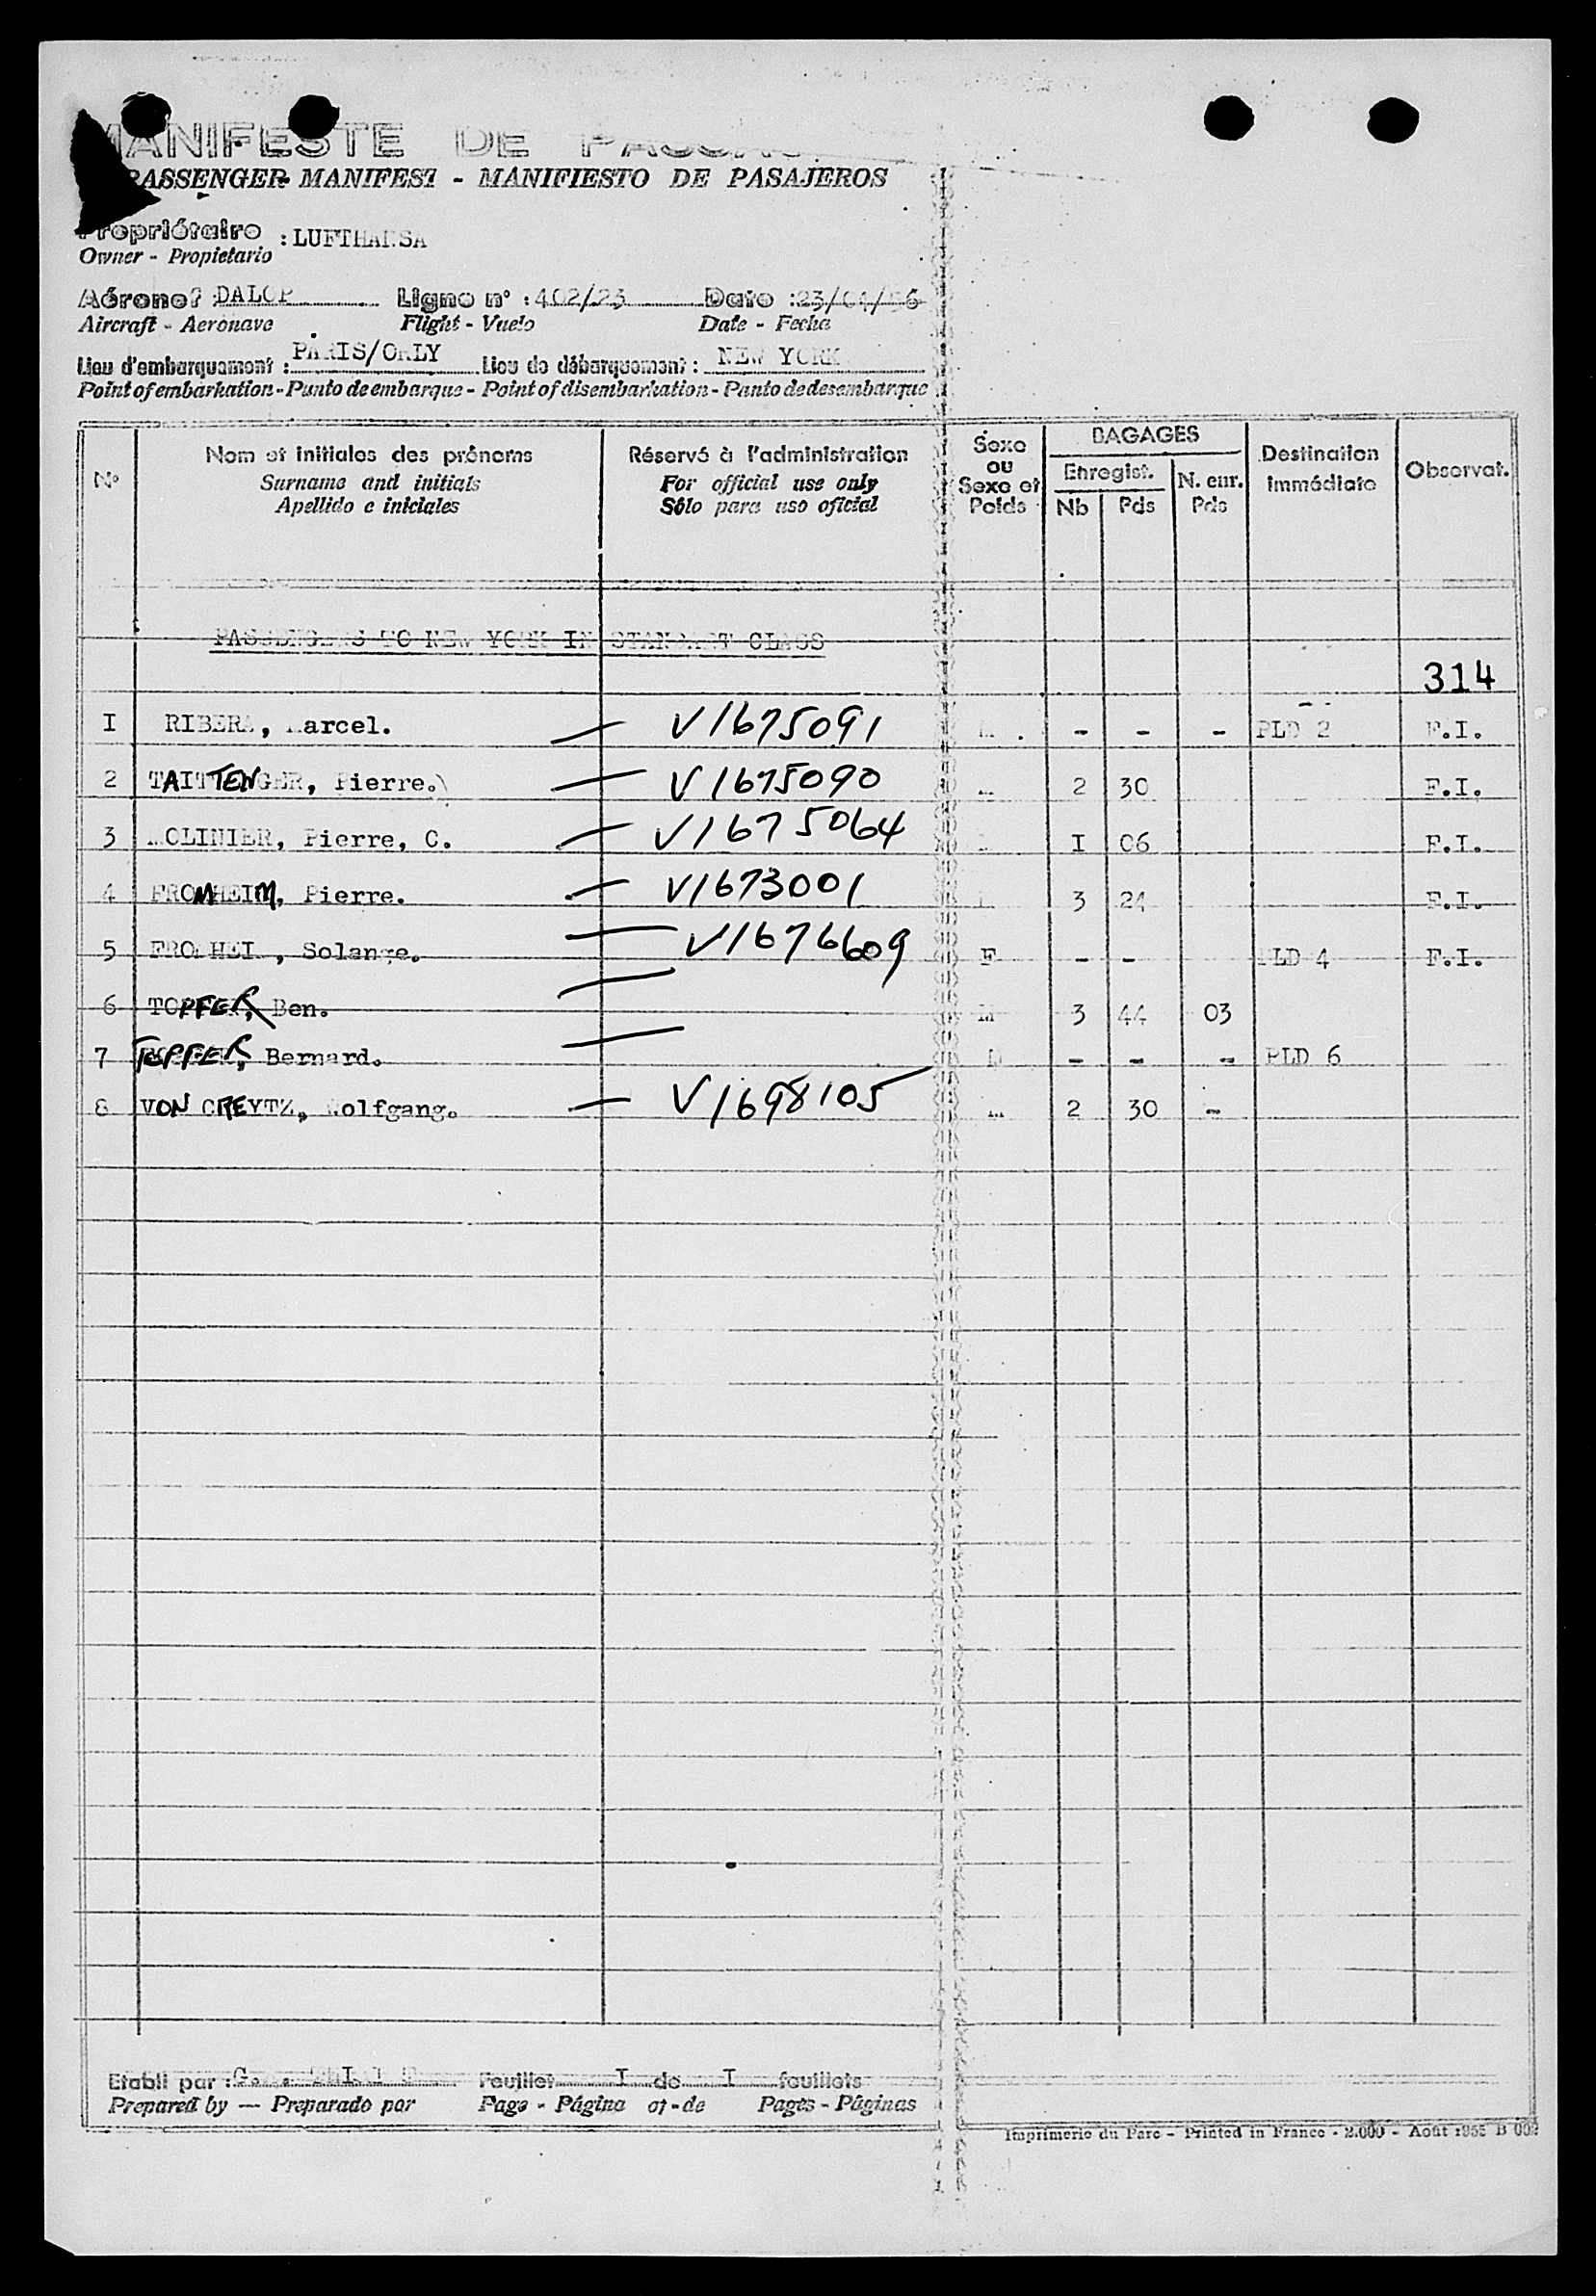 MANIFESTE DE
PASSENGER MANIFEST - MANIFIESTO DE PASAJEROS
Propriétaire : LUFTHANSA
Owner - Propietario
Aéronef : DALOP Ligne n° : 402/23 Date : 23/04/56
Aircraft - Aeronave Flight - Vuelo Date - Fecha
Lieu d'embarquement : PARIS/ORLY Lieu de débarquement : NEW YORK
Point of embarkation - Punto de embarque - Point of disembarkation - Punto de desembarque
N° Nom et initiales des prénoms Réservé à l'administration Sexe ou Sexe et Poids BAGAGES Destination immédiate Observat.
Surname and initials For official use only Enregist. N. enr.
Apellido e iniciales Sólo para uso oficial Nb Pds Pds
PASSENGERS TO NEW YORK IN STANDART CLASS
314
I RIBERA, Marcel. V1675091 M - - - PLD 2 F.I.
2 TAITTENGER, Pierre. V1675090 M 2 30 F.I.
3 MOLINIER, Pierre, C. V1675064 I 06 F.I.
4 FROMHEIM, Pierre. V1673001 3 24 F.I.
5 FROMHEIM, Solange. V1676609 F - - PLD 4 F.I.
6 TOPFER, Ben. M 3 44 03
7 TOPFER, Bernard. M - - - PLD 6
8 VON CREYTZ, Wolfgang. V1698105 M 2 30 -
Etabli par : G. Feuillet I de I feuillets
Prepared by — Preparado por Page - Página of - de Pages - Páginas
Imprimerie du Parc - Printed in France - 2.000 - Août 1955 B 002